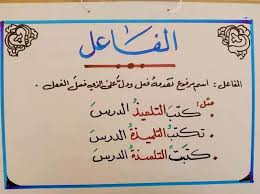 الفاعل
الفاعل : اسم مرفوع تقدمه فعل ودل على الذي فعل الفعل.
مثل:
• كتبَ التلميذُ الدرسَ
• تكتبُ التلميذةُ الدرسَ
• كتبَتْ التلمذةُ الدرسَ